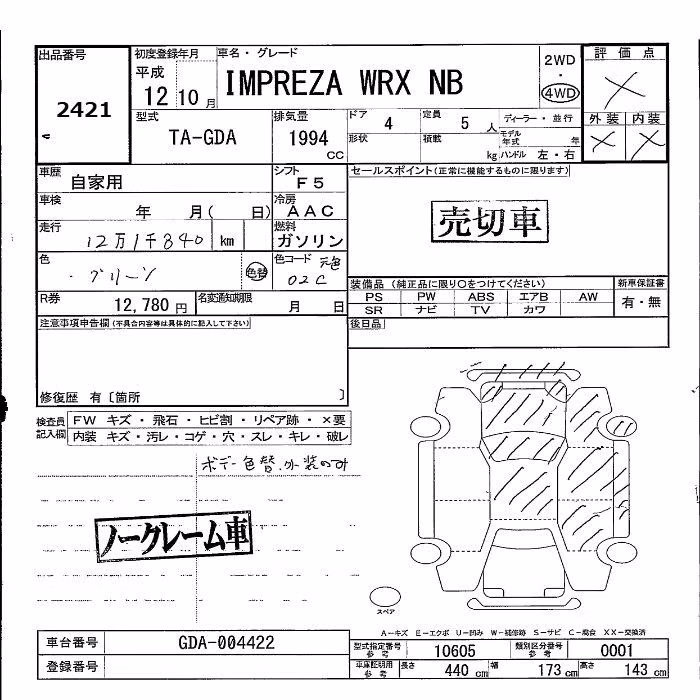 出品番号 初度登録年月 車名・グレード 2WD 評価点
平成 IMPREZA WRX NB ・ ×
2421 12年 10月 4WD
型式 排気量 ドア 4 定員 5人 ディーラー・並行 外装 内装
TA-GDA 1994 cc 形状 積載 kg モデル年式 年 × ×
ハンドル 左・右
車歴 自家用 シフト F5 セールスポイント(正常に機能するものに限ります)
車検 年 月( 日) 冷房 AAC 売切車
走行 12万1千840 km 燃料 ガソリン
色 グリーン 色替 色コード 元色 02C
装備品 (純正品に限り○をつけてください) 新車保証書
R券 12,780円 名変通知期限 月 日 PS PW ABS エアB AW 有・無
SR ナビ TV カワ
注意事項申告欄(不具合内容等は具体的に記入して下さい) 後日品
修復歴 有〔箇所 〕
検査員記入欄 FW キズ・飛石・ヒビ割・リペア跡・×要
内装 キズ・汚レ・コゲ・穴・スレ・キレ・破レ
ボデー色替.外装のみ
ノークレーム車
スペア
A-キズ E-エクボ U-凹み W-補修跡 S-サビ C-腐食 XX-交換済
車台番号 GDA-004422 型式指定番号参考 10605 類別区分番号参考 0001
登録番号 車庫証明用参考 長さ 440 cm 幅 173 cm 高さ 143 cm